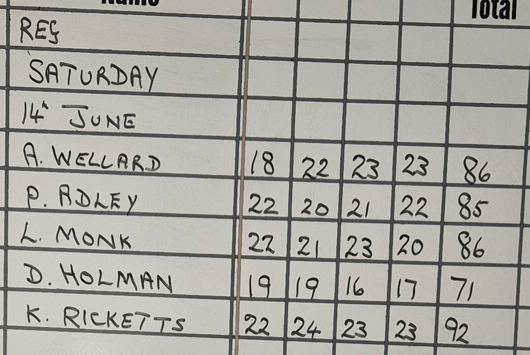 Name Total
REG
SATURDAY
14th JUNE
A. WELLARD 18 22 23 23 86
P. ADLEY 22 20 21 22 85
L. MONK 22 21 23 20 86
D. HOLMAN 19 19 16 17 71
K. RICKETTS 22 24 23 23 92